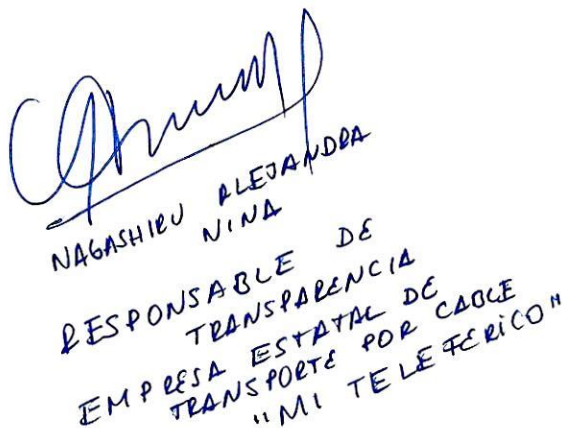 NAGASHIRU ALEJANDRA
NINA
RESPONSABLE DE
TRANSPARENCIA
EMPRESA ESTATAL DE
TRANSPORTE POR CABLE
"MI TELEFERICO"